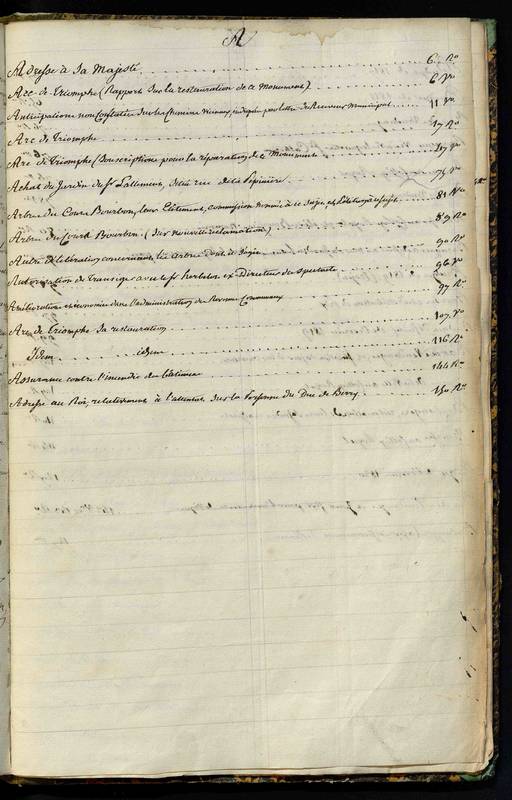 A
Adresse à Sa Majesté 6. Ro
Arc-de-Triomphe (Rapport sur la restauration de ce Monument) 6 Vo
Anticipations non Constatées sur les Chemins Vicinaux, indiquées par lettre du Receveur Municipal 11 Vo
Arc de Triomphe 17 Ro
Arc de Triomphe (Souscriptions pour la réparation de ce Monument 17 Vo
Achat du Jardin du Sr Lallement, situé rue de la Pépinière 75 Vo
Arbres du Cours Bourbon, leur Elètement, commission nommée à ce sujet et 81 Vo
Arbres du Cours Bourbon (Sur nouvelle réclamation) 89 Ro
Autre délibération concernant les arbres dont il s'agit 90 Ro
Autorisation de transiger avec le Sr ex-Directeur des Spectacles 96 Vo
Amélioration et économie dans l'administration des Revenus Communaux 97 Ro
Arc de Triomphe sa restauration 107 Vo
Idem idem 116 Ro
Assurance contre l'incendie des bâtimens 144 Ro
Adresse au Roi, relativement à l'attentat sur la Personne du Duc de Berry 150 Ro